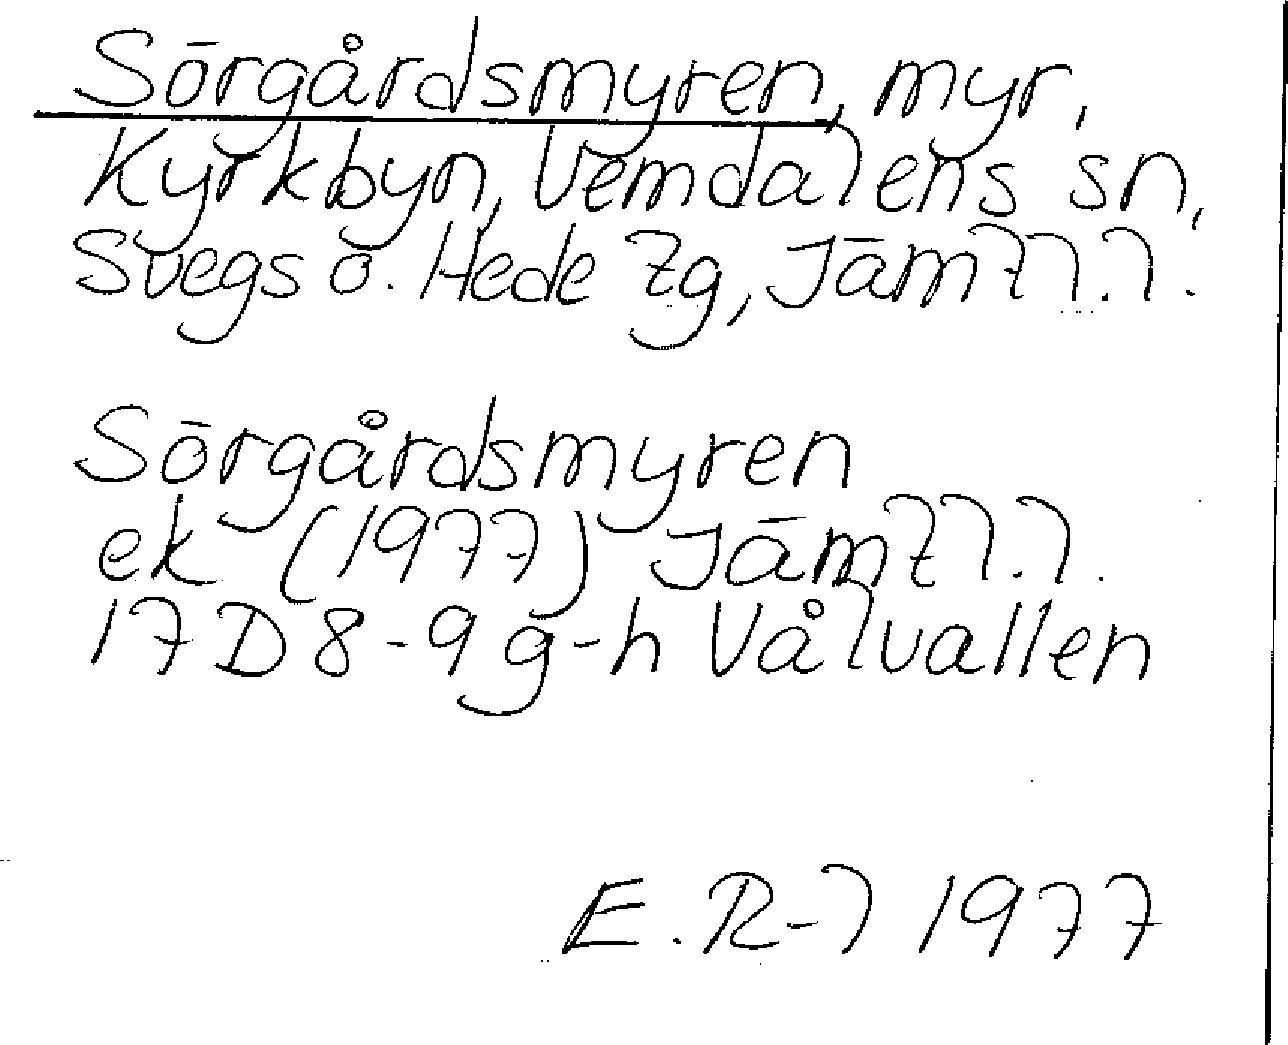 Sörgårdsmyren, myr,
Kyrkbyn, Vemdalens sn,
Svegs o. Hede tg, Jämtl.l.
Sörgårdsmyren
ek (1977) Jämtl.l.
17D 8-9 g-h Vålvallen
E.R-l 1977